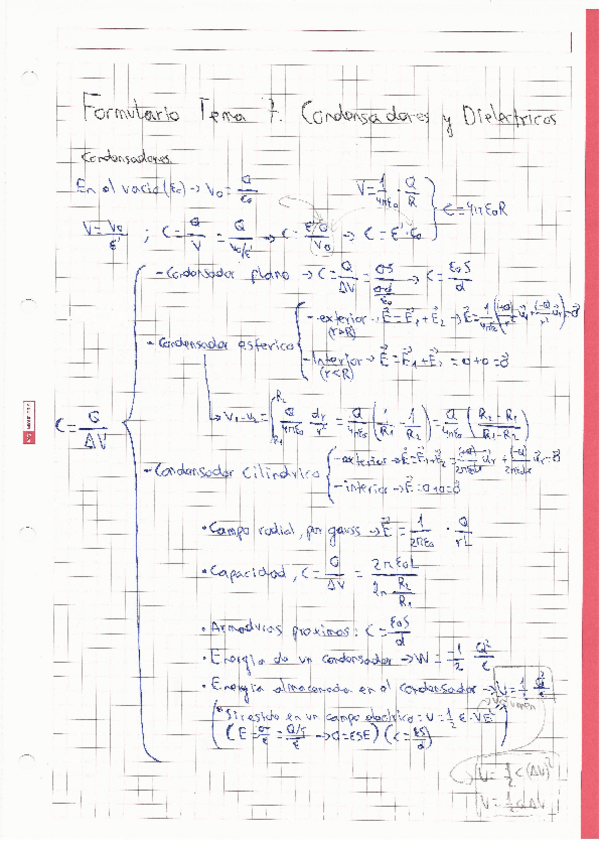 Formulario Tema 7. Condensadores y Dielectricos
Condensadores
En el vacio (ε₀) → V₀ = Q/ε₀
V = 1/4πε₀ · Q/R } C = 4πε₀R
V = V₀/ε' ; C = Q/V = Q/(V₀/ε') → C = ε'·Q/V₀ → C = ε'·C₀
C = Q/ΔV
- Condensador plano → C = Q/ΔV = σS/(σd/ε₀) → C = ε₀S/d
- Condensador esferico
- exterior → E⃗ = E⃗₁ + E⃗₂ → E⃗ = 1/4πε₀ ((+Q)/r² u⃗r + (-Q)/r² u⃗r) = 0⃗
(r>R)
- interior → E⃗ = E⃗₁ + E⃗₂ = 0+0 = 0⃗
(r<R)
→ V₁-V₂ = ∫ Q/4πε₀ dr/r² = Q/4πε₀ (1/R₁ - 1/R₂) = Q/4πε₀ (R₂-R₁/R₁-R₂)
- Condensador cilíndrico
- exterior → E⃗ = E⃗₁ + E⃗₂
- interior → E⃗ = 0+0 = 0⃗
• Campo radial, por gauss → E⃗ = 1/2πε₀ · Q/rL
• Capacidad, C = Q/ΔV = 2πε₀L / Ln R₂/R₁
• Armaduras proximas: C = ε₀S/d
• Energía de un condensador → W = -1/2 Q²/C
• Energia almacenada en el condensador → U = 1/2 Q²/C
* Si resido en un campo electrico: U = 1/2 ε·VE²
volumen
(E = σ/ε = Q/S/ε → Q = εSE) (C = εS/d)
U = 1/2 C(ΔV)²
U = 1/2 QΔV